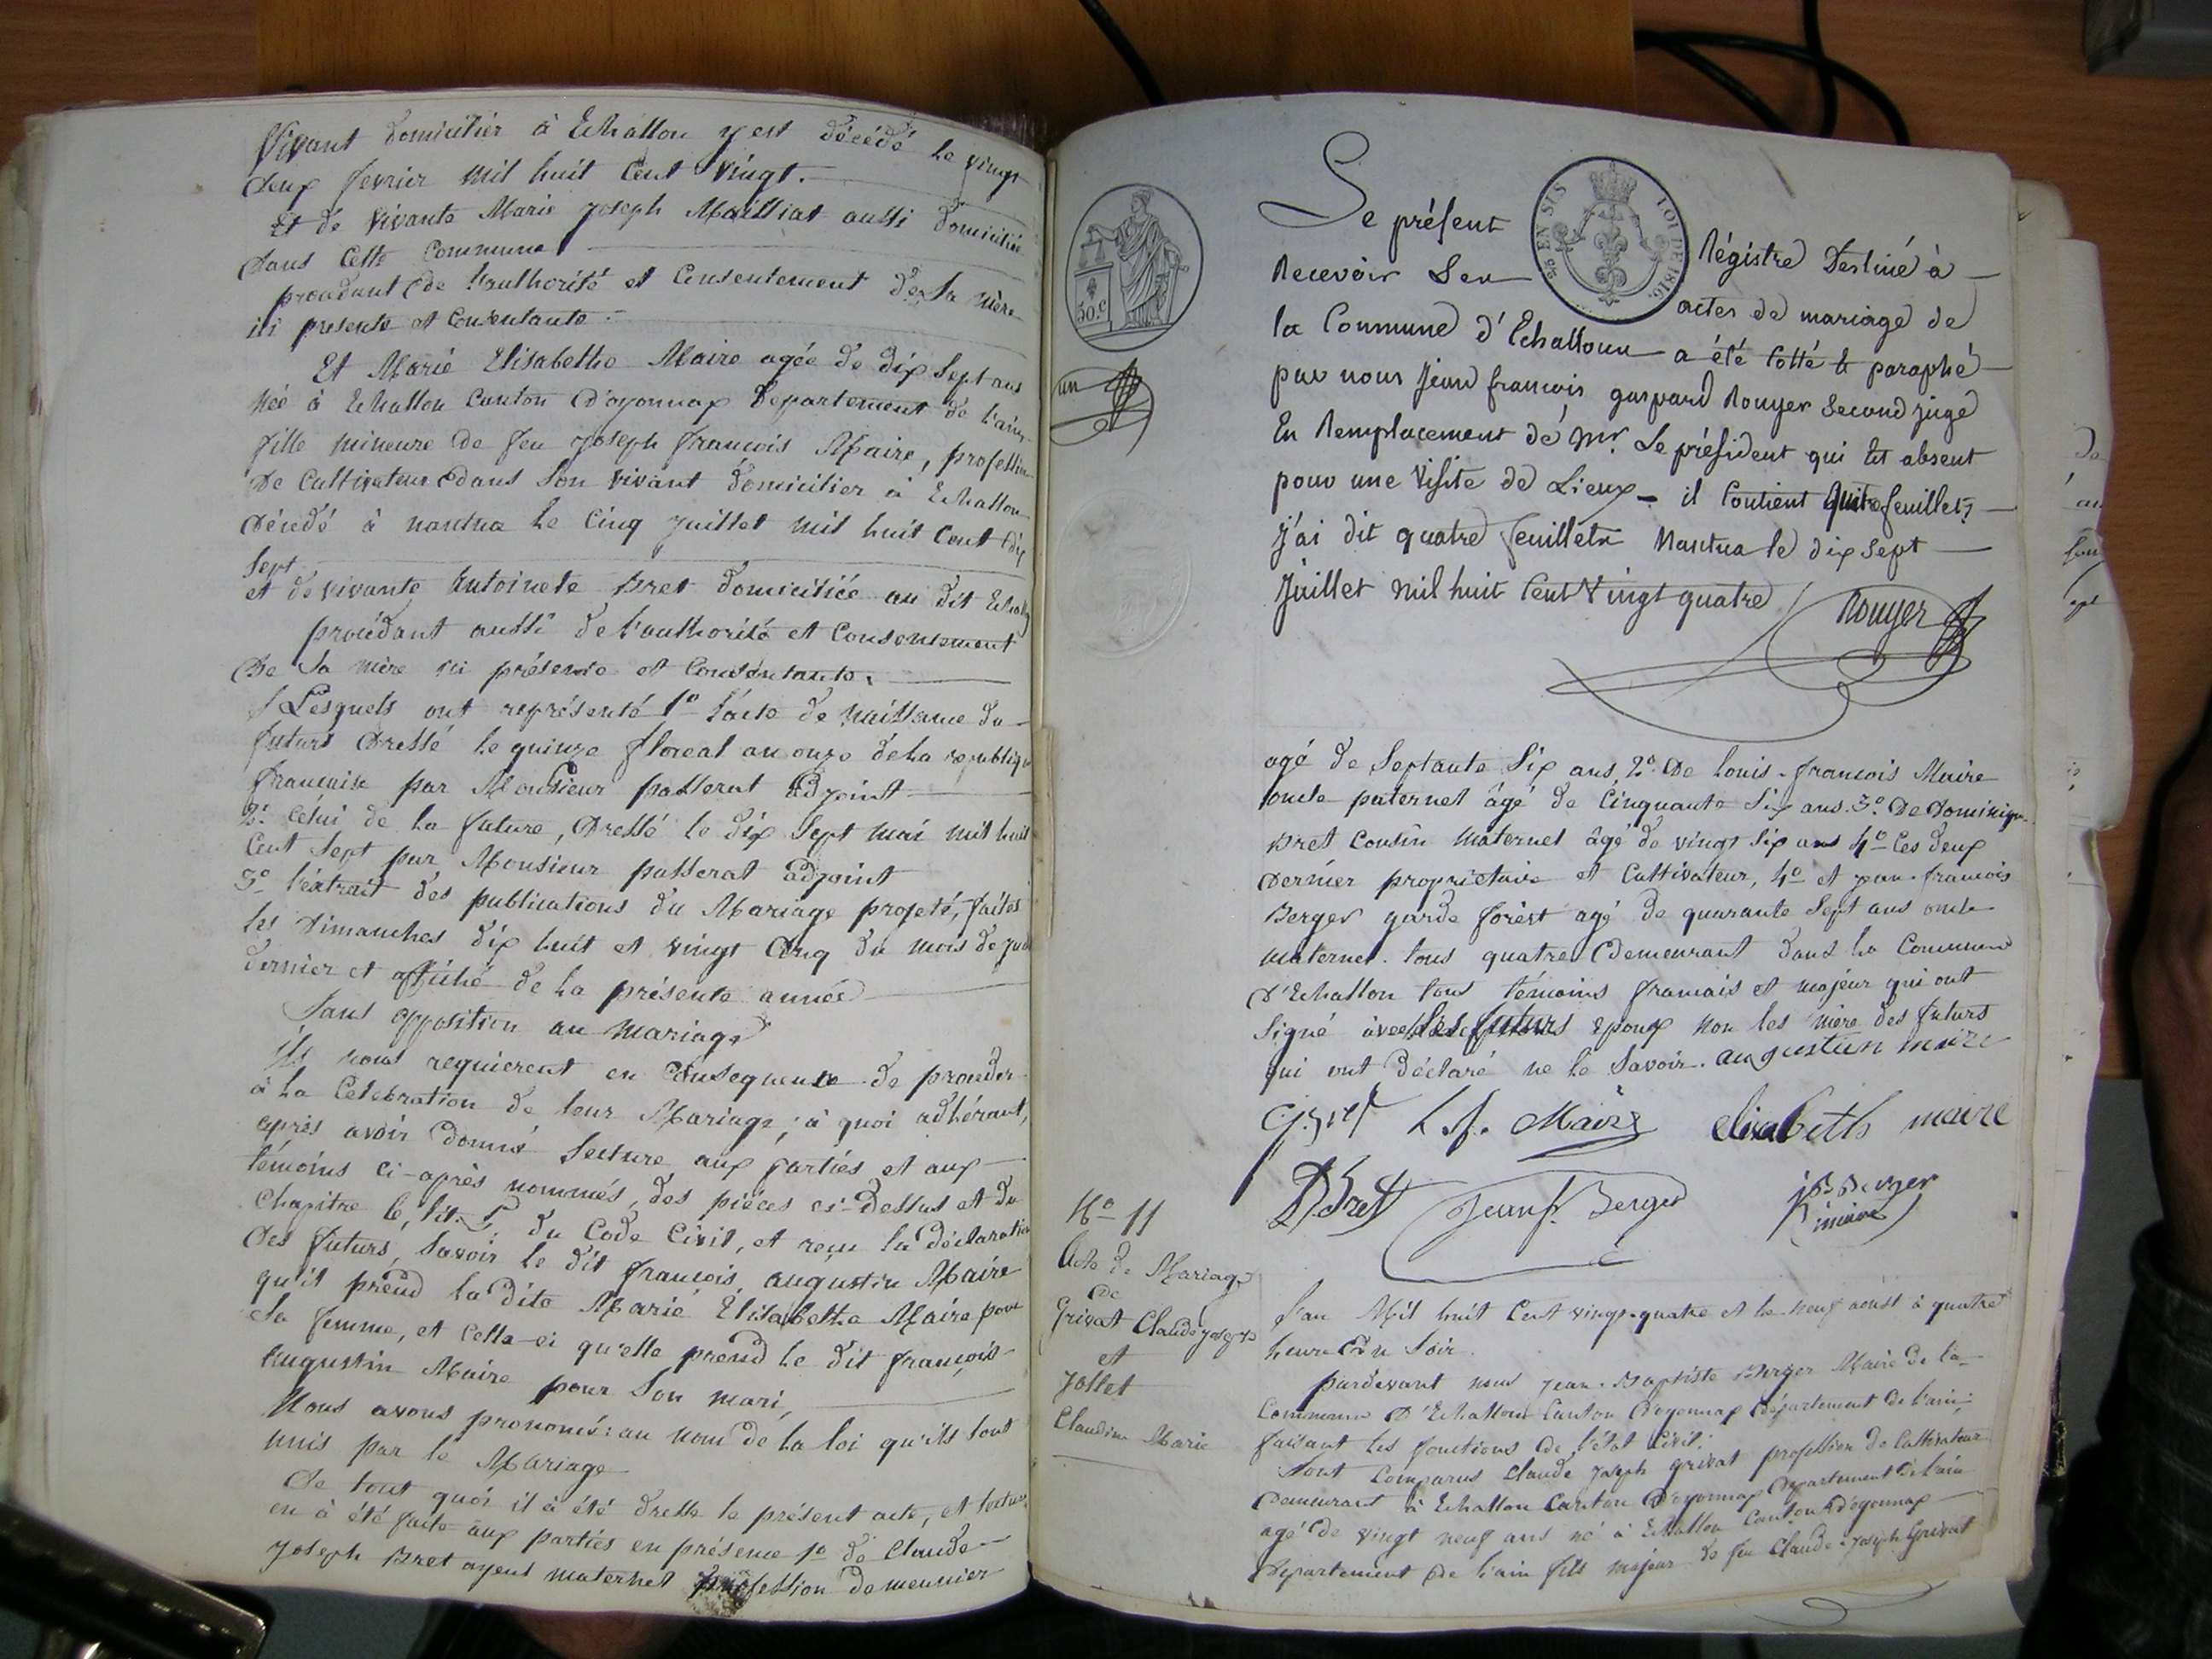 Vivant domicilier à Echallon y est décédé le vingt
deux fevrier mil huit Cent Vingt.
Et de vivante Marie Joseph Mailliat aussi domiciliée
dans Cette Commune
procédant de l'authorité et Consentement de sa mère
ici presente et Consentante.
Et Marie Elisabethe Maire agée de dix Sept ans
née à Echallon Canton d'oyonnax Departement de l'ain,
fille mineure de feu Joseph francois Maire, profession
De Cultivateur dans Son vivant domicilier à Echallon
Décédé à nantua le Cinq Juillet mil huit Cent dix
Sept
et de vivante Antoinete Bret domiciliée au dit Echallon
procédant aussi de l'authorité et Consentement
De Sa mère ici présente et Consentante.
Lesquels ont représenté 1º l'acte de naissance du
futurs Dressé le quinze floreal an onze de la republique
francaise par Monsieur passerat adjoint
2º Celui de la future, Dressé le dix Sept mai mil huit
Cent Sept par Monsieur passerat adjoint
3º l'extrait des publications du Mariage projeté, faites
les Dimanches dix huit et vingt Cinq du mois de Juil
dernier et affiché de la présente année
Sans opposition au mariage
Ils nous requierent en Consequence de proceder
à la Célébration de leur Mariage; à quoi adhérant,
après avoir donné Lecture aux parties et aux
témoins ci-après nommés, des pièces ci-Dessus et du
Chapitre 6, tit. 5 du Code Civil, et reçu la déclaration
Des futurs, Savoir le dit francois augustin Maire
qu'il prend la dite Marie Elisabethe Maire pour
Sa femme, et Celle-ci qu'elle prend le dit françois
Augustin Maire pour Son mari,
Nous avons prononcé: au nom de la loi qu'ils Sont
unis par le Mariage
De tout quoi il à été dressé le présent acte, et lecture
en à été faite aux parties en présence 1º de Claude
Joseph Bret ayeul maternel profession de meunier
EN SUS
LOI DE 1816.
50.c
un
Le présent Régistre Destiné à
Recevoir Les actes de mariage de
la Commune d'Echalloun a été Cotté & paraphé
par nous Jean françois gaspard Rouyer Second juge
En Remplacement de Mr. Le président qui Est absent
pour une Visite de Lieux - il Contient quatre feuillets
j'ai dit quatre feuillets Nantua le dix sept
Juillet mil huit Cent Vingt quatre
Rouyer
agé de Septante Six ans, 2º De louis-francois Maire
oncle paternel âgé de Cinquante Six ans. 3º De Dominique
Bret Cousin maternel âgé de vingt Six ans 4º Ces deux
Dernier propriétaire et Cultivateur, 4º et jean-francois
Berger garde forèst agé de quarante Sept ans oncle
maternel. tous quatre Demeurant dans la Commune
D'Echallon tous témoins francais et majeur qui ont
Signé avec les futurs epoux non les mère des futurs
qui ont déclaré ne le Savoir. augustin maire
L. f. Maire elisabeth maire
D. Bret Jean f. Berger j B Berger
maire
Nº 11
Acte de Mariage
De
Grivat Claude joseph
et
Jollet
Claudine Marie
L'an Mil huit Cent vingt-quatre et le neuf août à quatre
heure Du Soir.
pardevant nous Jean-Baptiste Berger Maire de la
Commune D'Echallon Canton D'oyonnax Département de l'ain,
faisant les fonctions de l'état Civil;
Sont Comparus Claude Joseph grivat profession de Cultivateur
Demeurant à Echallon Canton D'oyonnax Departement de l'ain
agé de vingt neuf ans né à Echallon Canton d'oyonnax
Département de l'ain fils majeur de feu Claude-Joseph Grivat